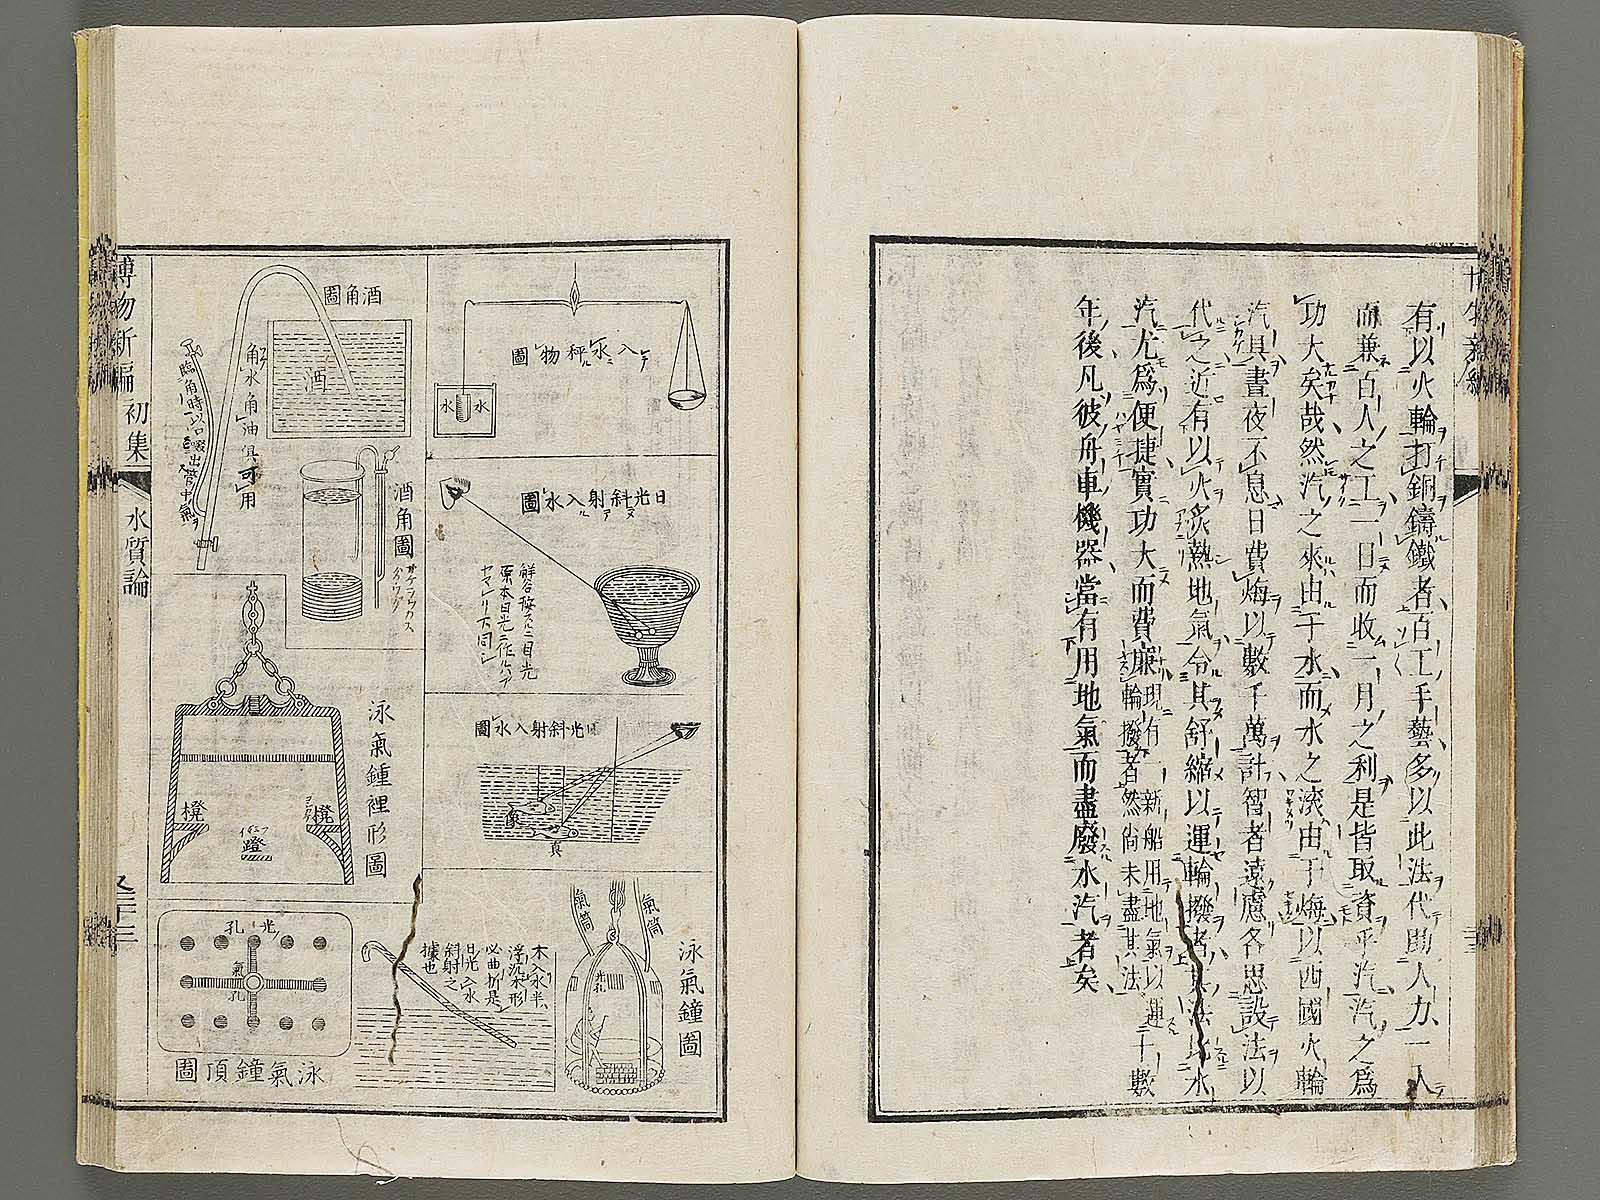 有以火輪打銅鑄鐵者百工手藝多以此法代助人力一人
而兼百人之工一日而收一月之利是皆取資乎汽汽之爲
功大矣哉然汽之來由于水而水之滚由于煤以西國火輪
汽具晝夜不息日費煤以數千萬計智者遠慮各思設法以
代之近有以火炙熱地氣令其舒縮以運輪撥者其法比水
汽尤爲便捷實功大而費廉現有一新船用地氣以運輪撥者然尚未盡其法二十數
年後凡彼舟車機器當有用地氣而盡廢水汽者矣
入水秤物圖
水
水
日光斜射入水圖
解谷按スルニ目光
原本日光ニ作ルハ
ヤマレリ下同シ
日光斜射入水圖
像
真
泳氣鐘圖
氣筒
氣筒
光孔
木入水半
浮沉其形
必曲折是
日光入水
斜射之
據也
酒角圖
酒
解水角油俱可用
臨角時以口啜出管中氣
酒角圖
泳氣鍾裡形圖
櫈
櫈
蹬
光孔
氣孔
泳氣鐘頂圖
博物新編
初集
水質論
二十三